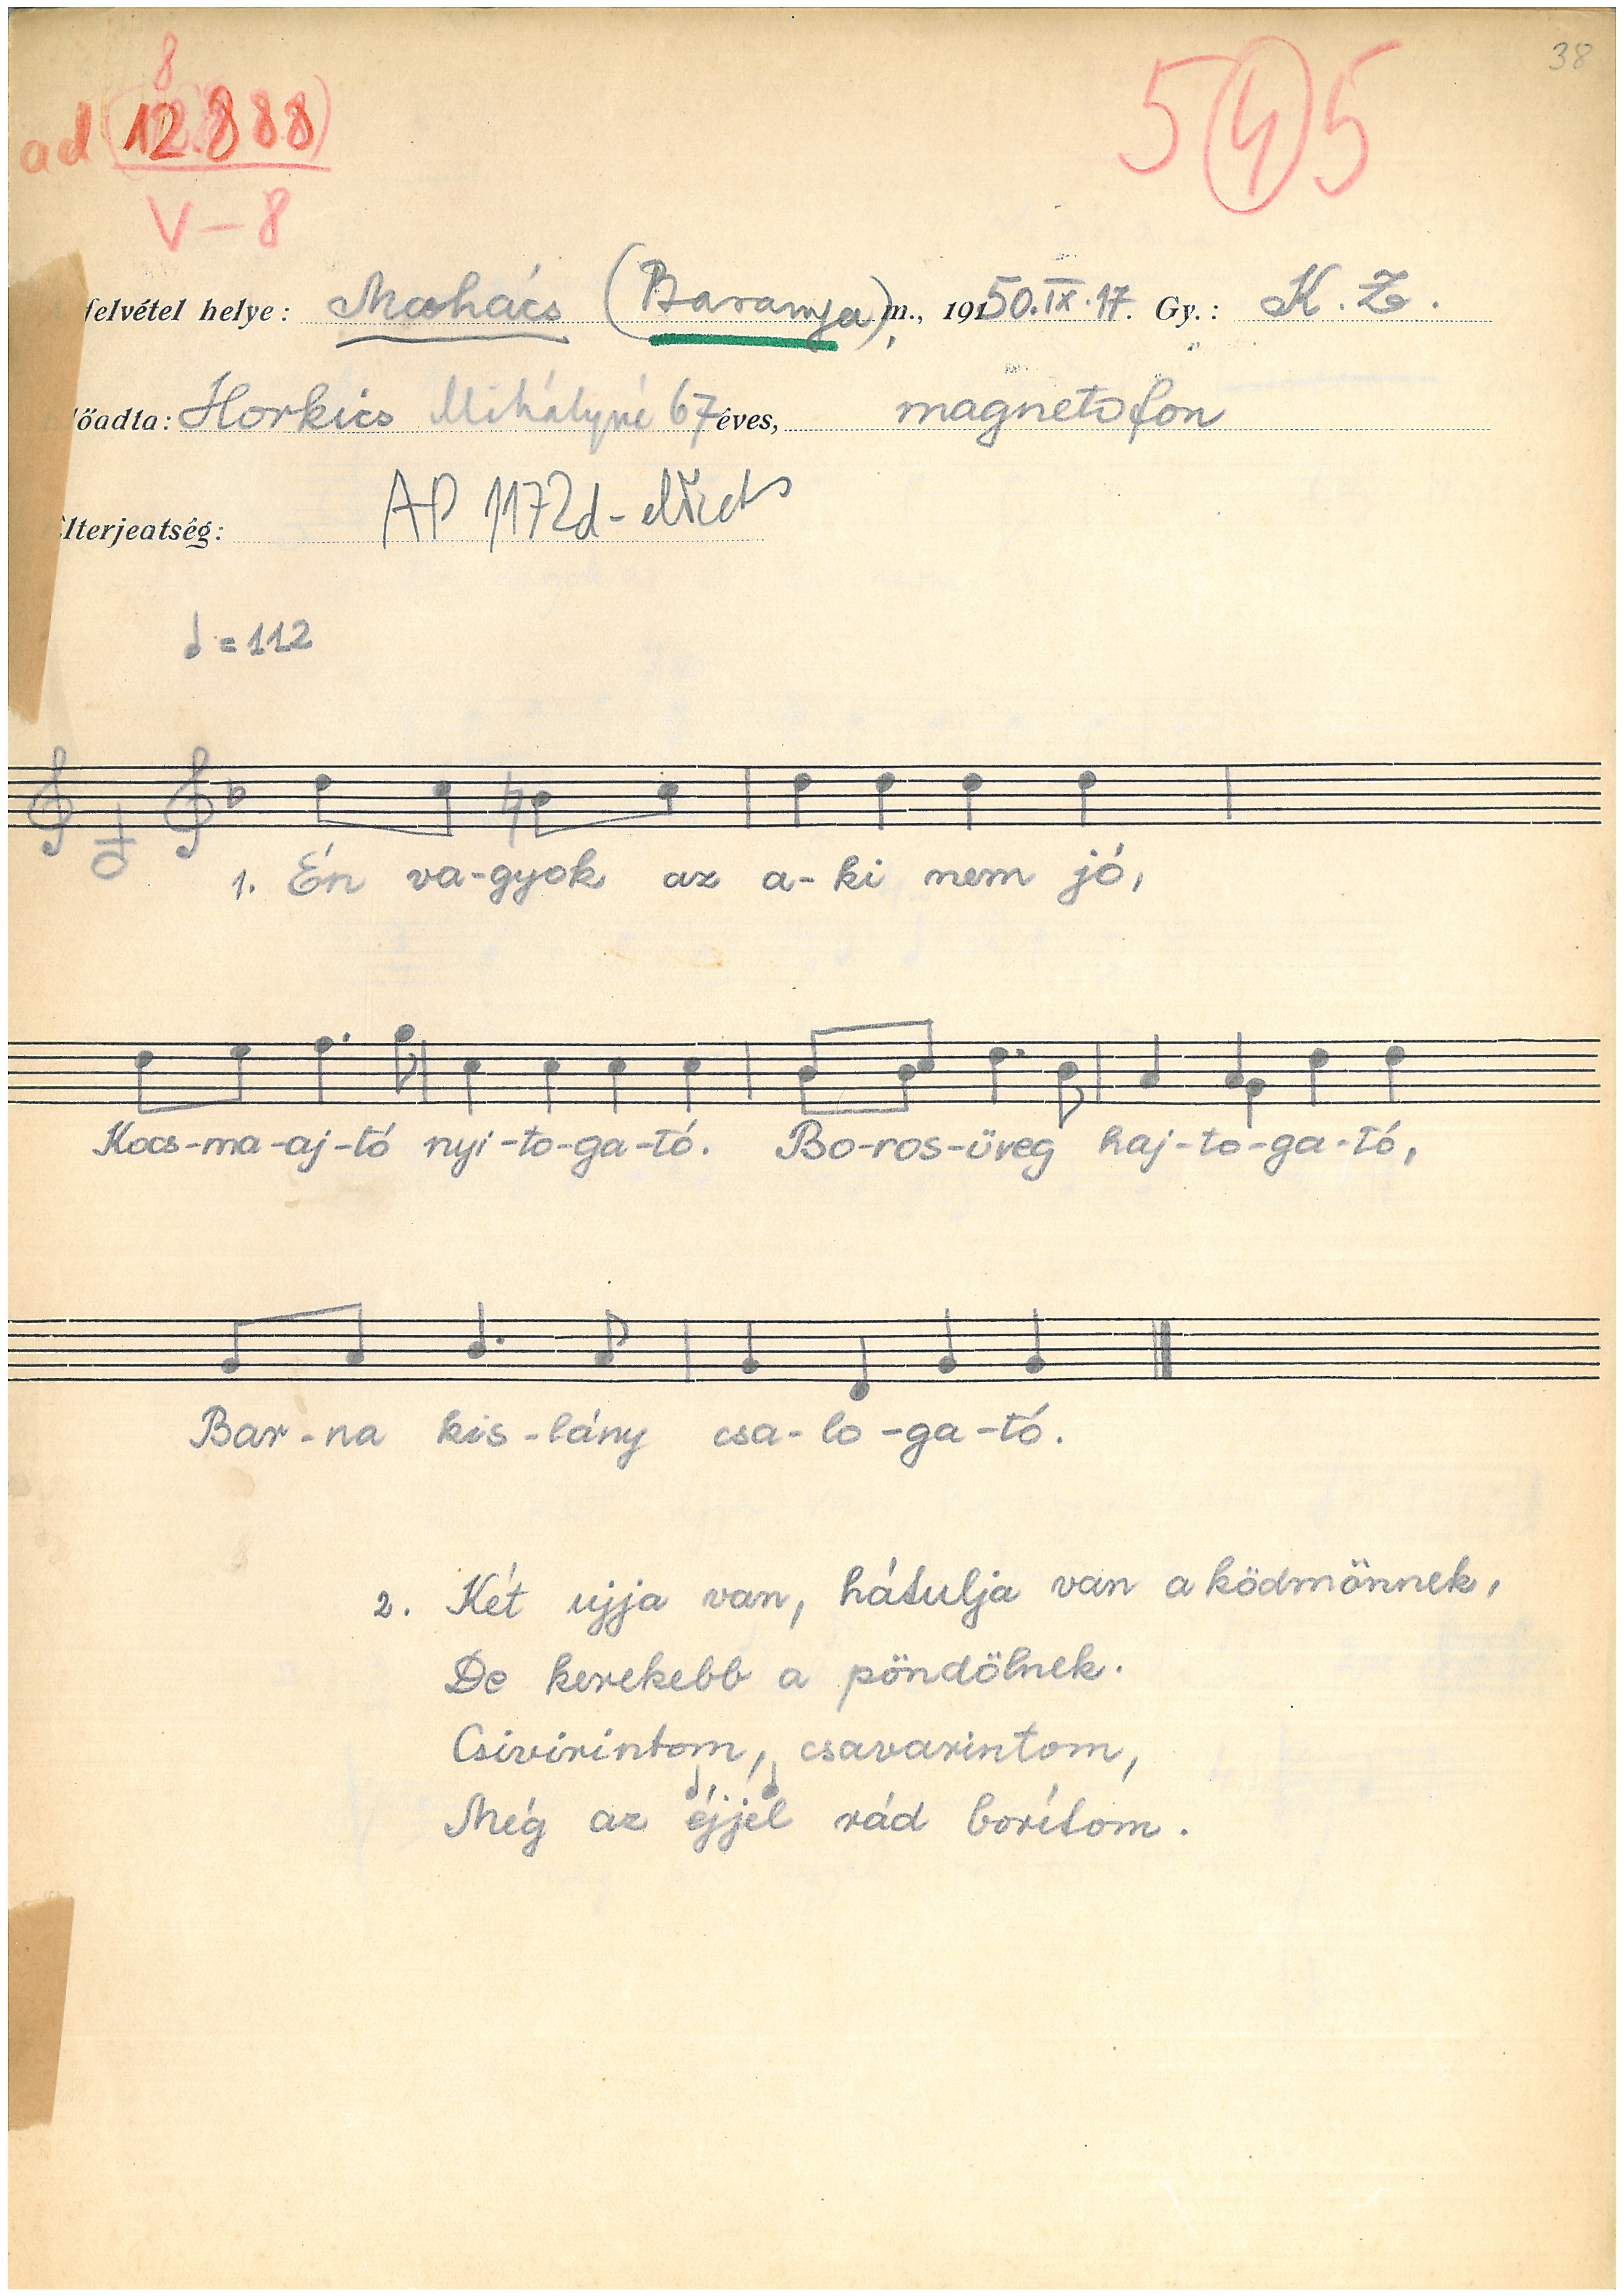 38
8
ad (12.888)
V-8
5 4 5
felvétel helye: Mohács (Baranya) m., 1950.IX.17. Gy.: K. Z.
őadta: Horkics Mihályné 67 éves, magnetofon
AP 1172d-
lterjeatség:
= 112
1. Én va-gyok az a-ki nem jó,
Kocs-ma-aj-tó nyi-to-ga-tó. Bo-ros-üveg haj-to-ga-tó,
Bar-na kis-lány csa-lo-ga-tó.
2. Két ujja van, hátulja van a ködmönnek,
De kerekebb a pöndölnek.
Csivirintom, csavarintom,
Még az éjjel rád borítom.